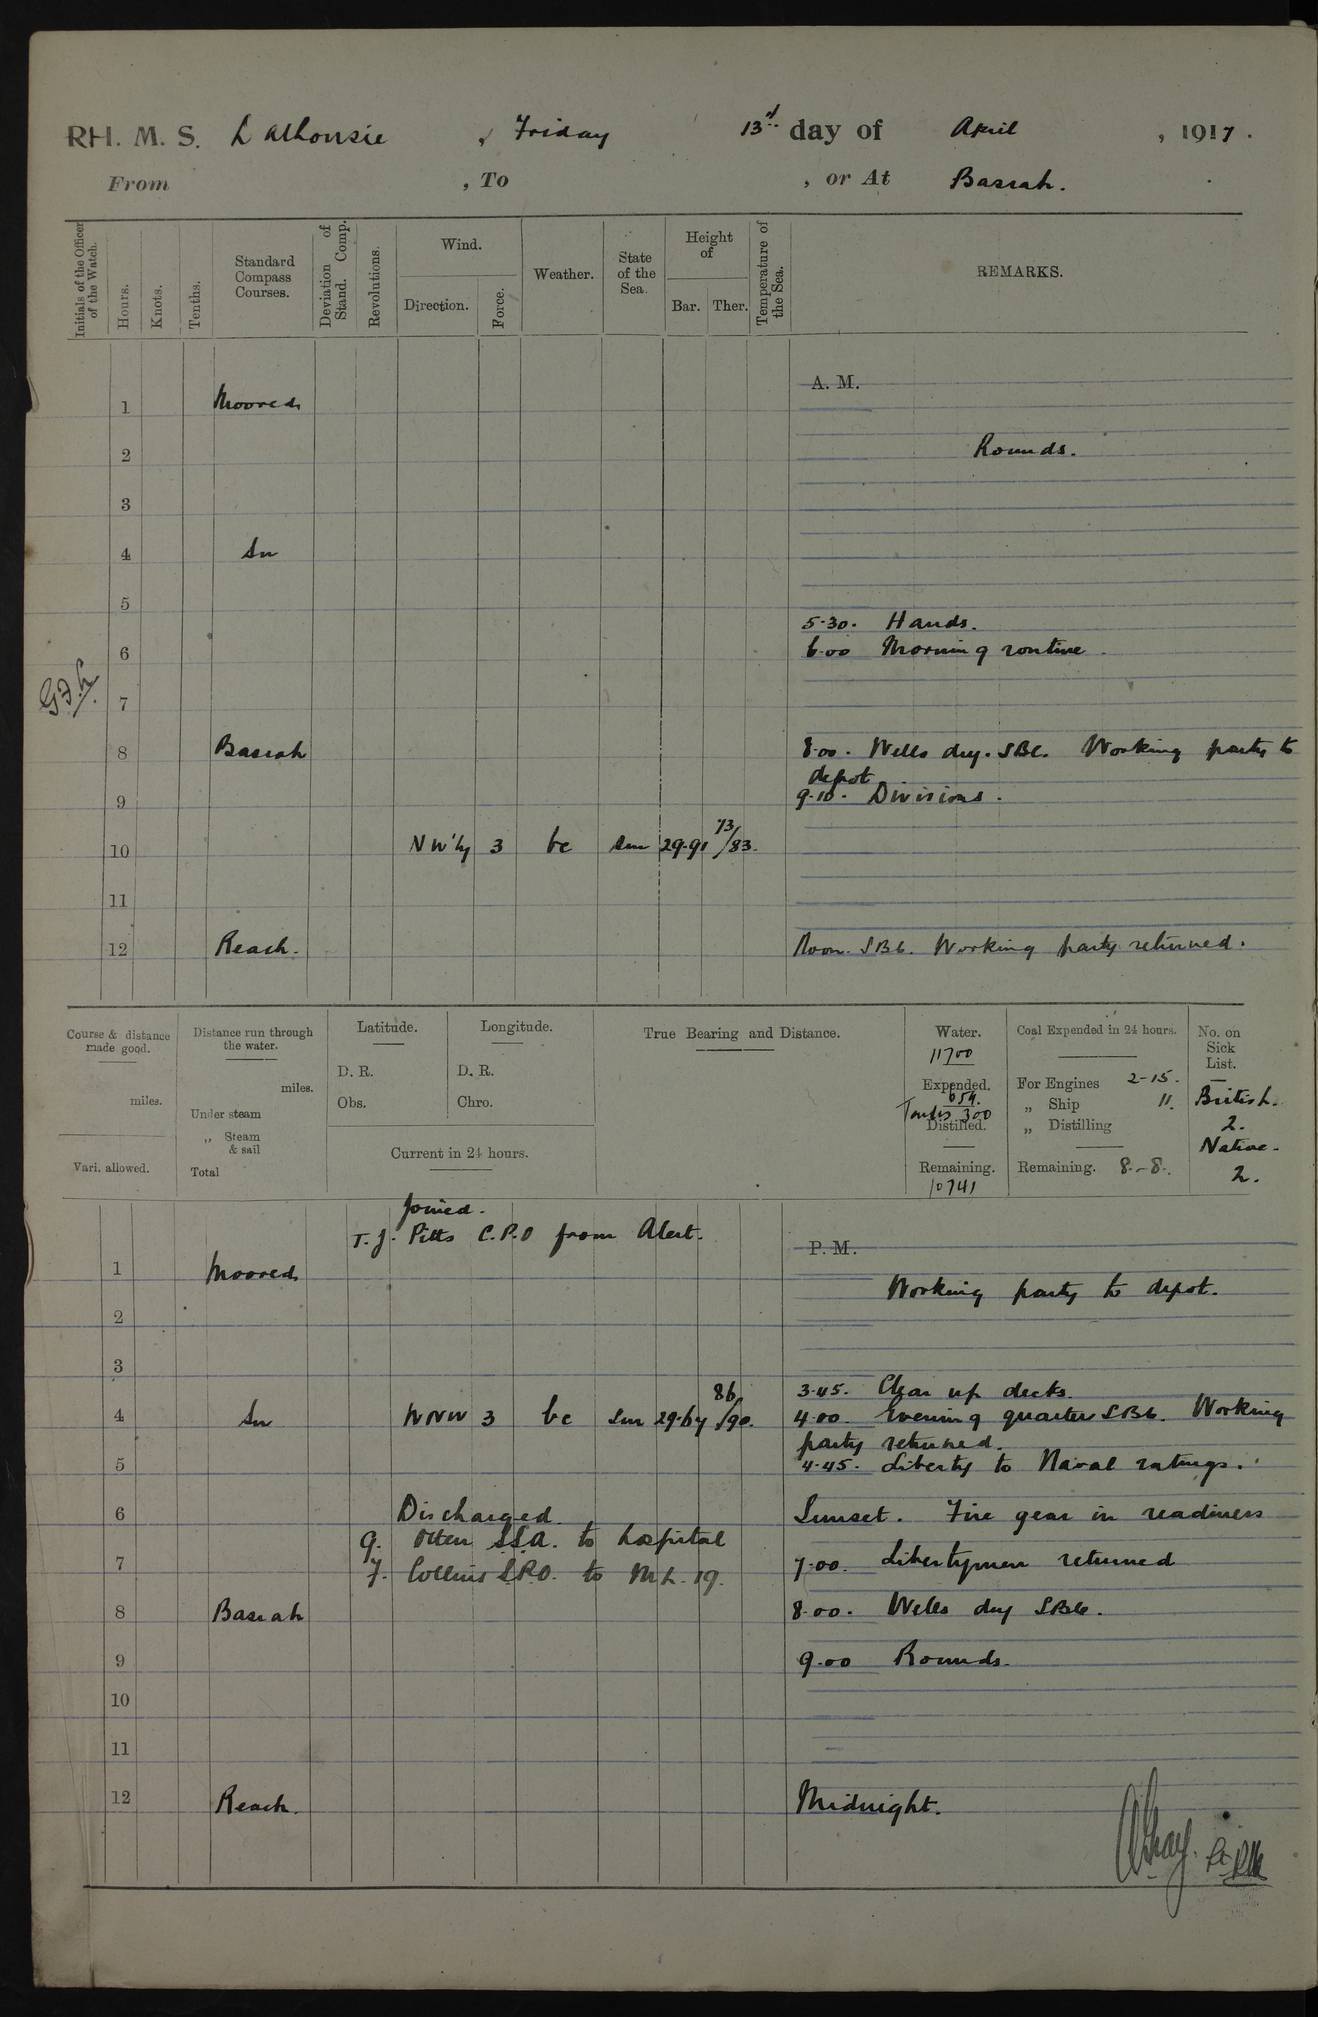 RH. M. S. Dalhousie , Friday 13th day of April , 1917.
From , To , or At Basrah.
Initials of the Officer of the Watch.
Hours.
Knots.
Tenths.
Standard Compass Courses.
Deviation of Stand. Comp.
Revolutions.
Wind.
Direction.
Force.
Weather.
State of the Sea.
Height of
Bar. Ther.
Temperature of the Sea.
REMARKS.
A. M.
1 Moored
2 Rounds.
3
4 In
5
5.30. Hands.
6 6.00 Morning routine.
7
8 Basrah 8.00. Wells dry. SBC. Working party to
depot
9 9.10. Divisions.
10 NW'ly 3 bc Sm 29.91 73/83.
11
12 Reach. Noon. SBC. Working party returned.
Course & distance made good.
miles.
Vari. allowed.
Distance run through the water.
miles.
Under steam
„ Steam & sail
Total
Latitude.
D. R.
Obs.
Longitude.
D. R.
Chro.
Current in 24 hours.
True Bearing and Distance.
Water.
11700
Expended.
659.
Tanks 300
Distilled.
Remaining.
10741
Coal Expended in 24 hours.
For Engines 2-15.
„ Ship 11.
„ Distilling
Remaining. 8.-8.
No. on Sick List.
British.
2.
Native.
2.
Joined.
T. J. Pitts C.P.O from Alert.
P. M.
1 Moored
Working party to depot.
2
3
3.45. Clear up decks.
4 In WNW 3 bc Sm 29.67 86/90. 4.00. Evening quarters SBC. Working
party returned.
5 4.45. Liberty to Naval ratings.
6 Discharged. Sunset. Fire gear in readiness
G. Otten S.S.A. to hospital
7 7.00. Libertymen returned
F. Collins S.P.O. to M.L. 19.
8 Basrah 8.00. Wells dry SBC.
9 9.00 Rounds.
10
11
12 Reach. Midnight.